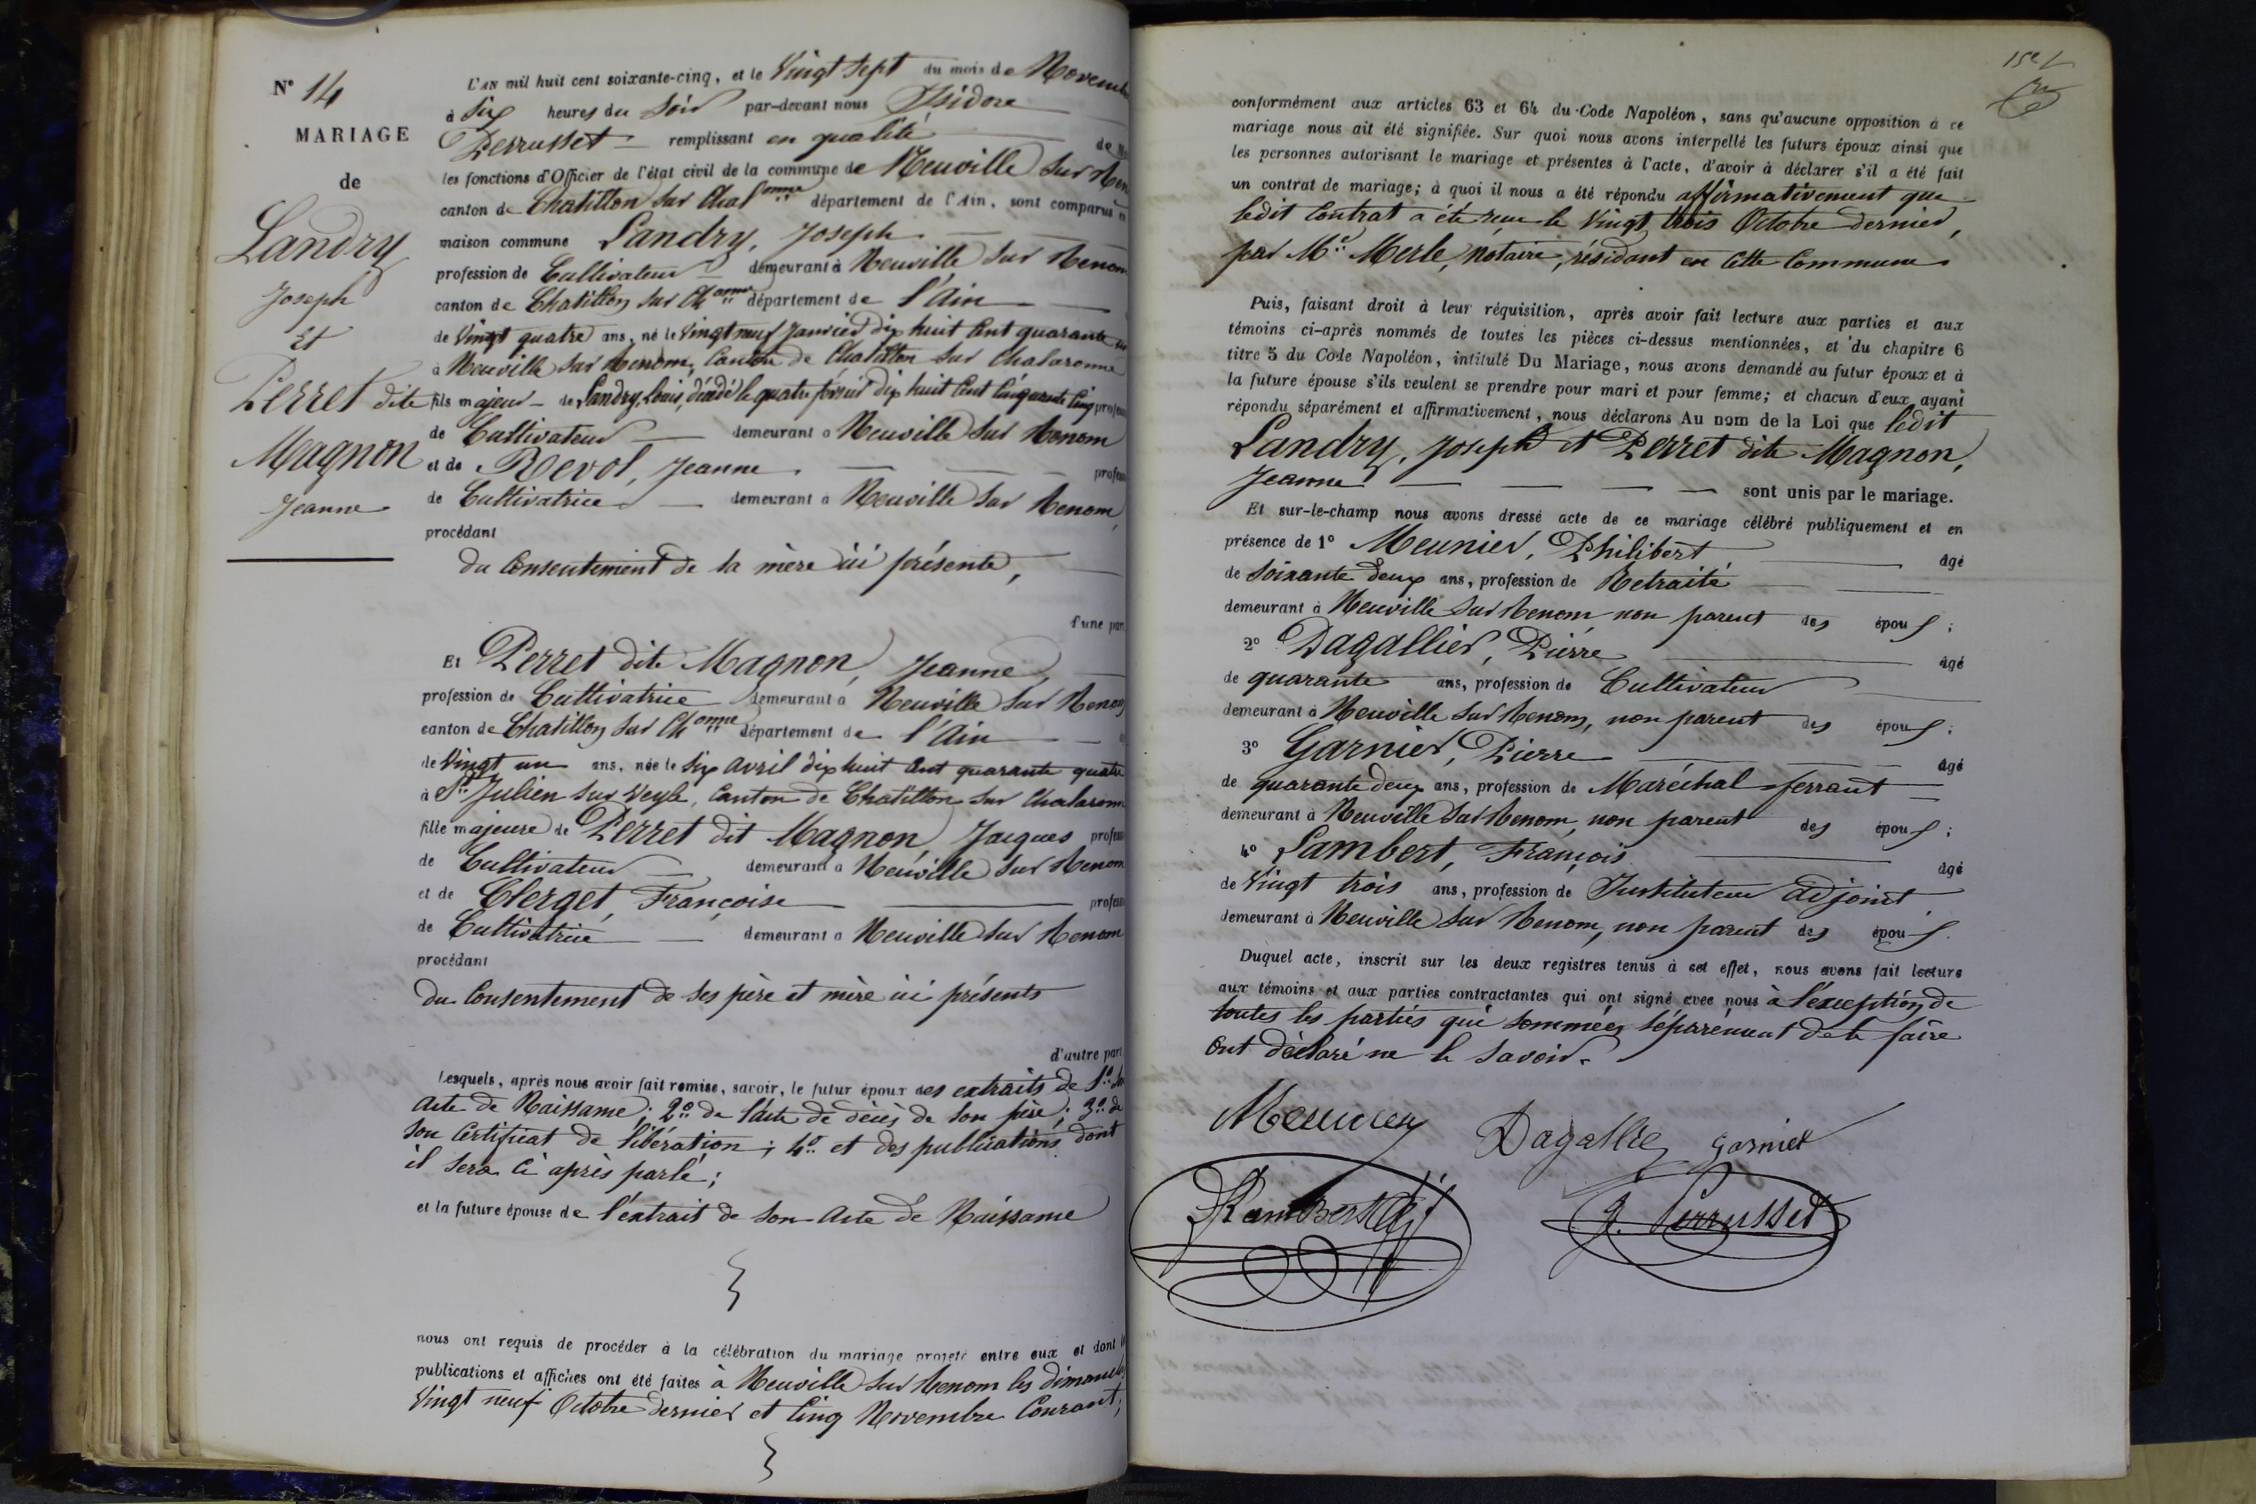 N° 14
MARIAGE
de
Landry
Joseph
Et
Perret dite
Magnon
Jeanne
L'AN mil huit cent soixante-cinq, et le Vingt Sept du mois de Novemb
à Six heures du Soir par-devant nous Isidore
Perrusset remplissant en qualité de
les fonctions d'Officier de l'état civil de la commune de Neuville sur Ren
canton de Chatillon sur Chalonne département de l'Ain, sont comparus
maison commune Landry, Joseph
profession de Cultivateur demeurant à Neuville sur Renom
canton de Chatillon sur Chonne département de l'Ain
de Vingt quatre ans, né le Vingt neuf Janvier dix huit Cent quarante
à Neuville sur Renom, Canton de Chatillon sur Chalaronne
fils majeur de Landry, Louis, décédé le quatre février dix huit Cent Cinquante Cinq profess
de Cultivateur demeurant à Neuville sur Renom
et de Revol, Jeanne profess
de Cultivatrice demeurant à Neuville sur Renom,
procédant
du Consentement de sa mère ici présente,
d'une part
Et Perret dite Magnon, Jeanne,
profession de Cultivatrice demeurant à Neuville sur Renom
canton de Chatillon sur Chonne département de l'Ain
de Vingt un ans, née le Six Avril dix huit Cent quarante quatre
à St Julien sur Veyle, Canton de Chatillon sur Chalaronn
fille majeure de Perret dit Magnon, Jacques profess
de Cultivateur demeurant à Neuville sur Renom
et de Clerget, Françoise profess
de Cultivatrice demeurant à Neuville sur Renom
procédant
du Consentement de ses père et mère ici présents
d'autre part
Lesquels, après nous avoir fait remise, savoir, le futur époux des extraits de 1° son
Acte de Naissance; 2° de l'acte de décès de son père; 3° de
son Certificat de libération; 4° et des publications dont
il sera Ci après parlé;
et la future épouse de l'extrait de son Acte de Naissance
nous ont requis de procéder à la célébration du mariage projeté entre eux et dont
publications et affiches ont été faites à Neuville sur Renom les dimanches
Vingt neuf Octobre dernier et Cinq Novembre Courant;
conformément aux articles 63 et 64 du Code Napoléon, sans qu'aucune opposition à ce
mariage nous ait été signifiée. Sur quoi nous avons interpellé les futurs époux ainsi que
les personnes autorisant le mariage et présentes à l'acte, d'avoir à déclarer s'il a été fait
un contrat de mariage; à quoi il nous a été répondu affirmativement que
ledit Contrat a été reçu le Vingt trois Octobre dernier,
par Me Merle, notaire, résidant en Cette Commune
Puis, faisant droit à leur réquisition, après avoir fait lecture aux parties et aux
témoins ci-après nommés de toutes les pièces ci-dessus mentionnées, et du chapitre 6
titre 5 du Code Napoléon, intitulé Du Mariage, nous avons demandé au futur époux et à
la future épouse s'ils veulent se prendre pour mari et pour femme; et chacun d'eux ayant
répondu séparément et affirmativement, nous déclarons Au nom de la Loi que ledit
Landry, Joseph et Perret dite Magnon,
Jeanne sont unis par le mariage.
Et sur-le-champ nous avons dressé acte de ce mariage célébré publiquement et en
présence de 1° Meunier, Philibert âgé
de Soixante deux ans, profession de Retraité
demeurant à Neuville sur Renom non parent des époux;
2° Dagallier, Pierre âgé
de quarante ans, profession de Cultivateur
demeurant à Neuville sur Renom, non parent des époux;
3° Garnier, Pierre âgé
de quarante deux ans, profession de Maréchal ferrant
demeurant à Neuville sur Renom, non parent des époux;
4° Lambert, François âgé
de Vingt trois ans, profession de Instituteur Adjoint
demeurant à Neuville sur Renom, non parent des époux.
Duquel acte, inscrit sur les deux registres tenus à cet effet, nous avons fait lecture
aux témoins et aux parties contractantes qui ont signé avec nous à l'exception de
toutes les parties qui sommées séparément de le faire
Ont déclaré ne le savoir.
Meunier
Dagallier Garnier
Lambert Adj
J. Perrusset